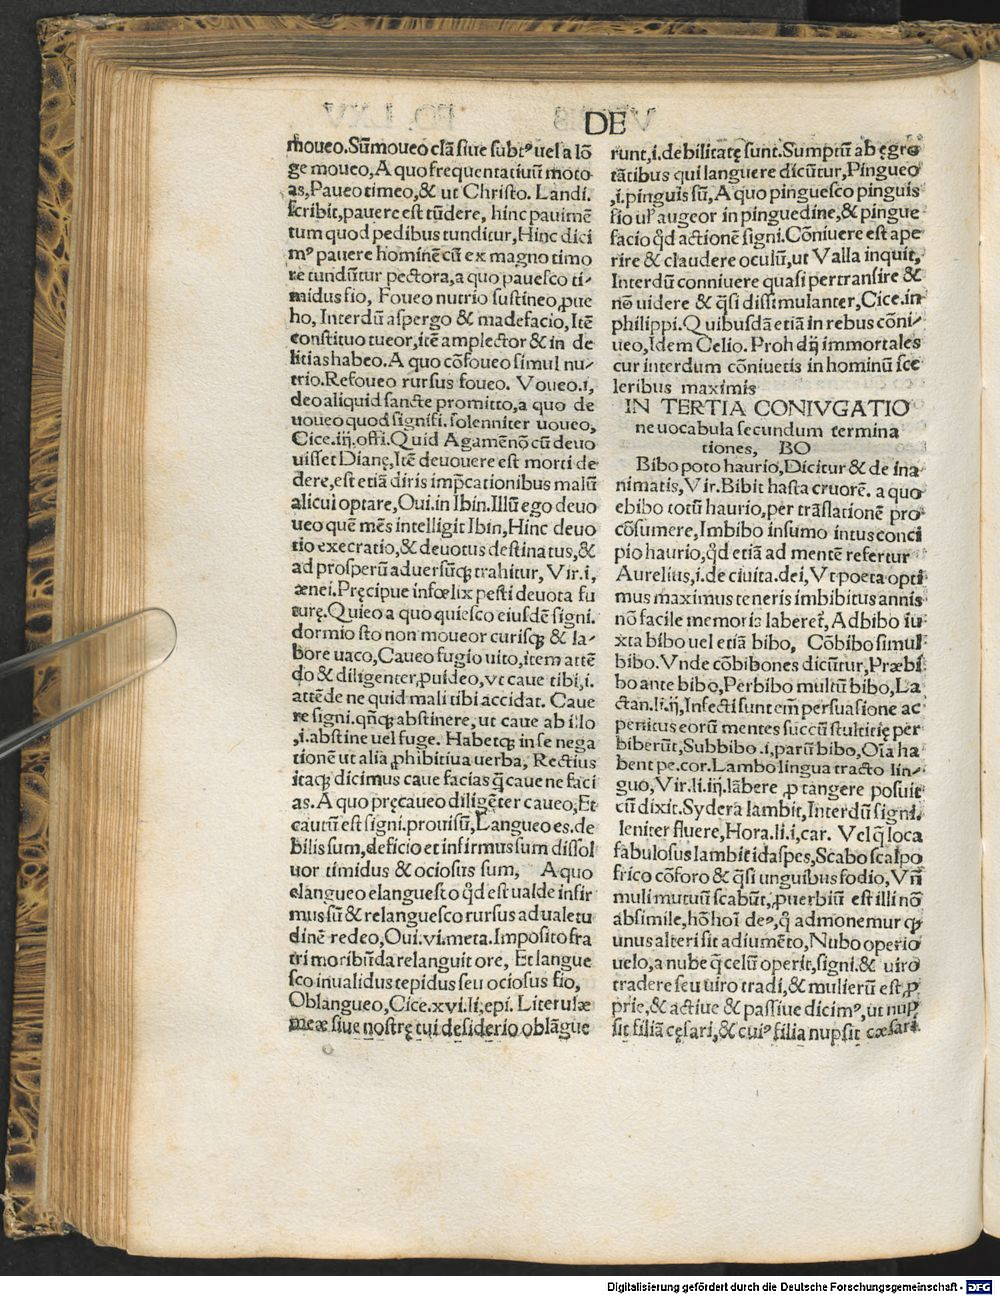 DE
moueo.Sūmoueo clā siue subtꝰ uel a lō
ge moueo,A quo frequentatiuū moto
as,Paueo timeo,& ut Christo. Landi.
scribit,pauere est tūdere, hinc pauimē
tum quod pedibus tunditur,Hinc dici
mꝰ pauere hominē cū ex magno timo
re tundūtur pectora,a quo pauesco ti-
midus fio, Foueo nutrio sustineo,ꝓue
ho, Interdū aspergo & madefacio,Itē
constituo tueor,itē amplector & in de
litias habeo.A quo cōfoueo simul nu-
trio.Refoueo rursus foueo. Voueo.i,
deo aliquid sancte promitto,a quo de
uoueo quod signifi. solenniter uoueo,
Cice.iij.offi.Quid Agamēnō cū deuo
uisset Dianę,Itē deuouere est morti de
dere,est etiā diris imp̄cationibus malū
alicui optare,Oui.in Ibin.Illū ego deuo
ueo quē mēs intelligit Ibin,Hinc deuo
tio execratio,& deuotus destinatus,&
ad prosperū aduersūqꝫ trahitur, Vir.i,
ænei.Pręcipue infœlix pesti deuota fu
turę.Quieo a quo quiesco eiusdē signi.
dormio sto non moueor curisqꝫ & la-
bore uaco,Caueo fugio uito,item attē
do & diligenter,ꝓuideo,vt caue tibi,i.
attēde ne quid mali tibi accidat. Caue
re signi.qn̄qꝫ abstinere, ut caue ab illo
,i.abstine uel fuge. Habetqꝫ in se nega
tionē ut alia ꝓhibitiua uerba, Rectius
itaqꝫ dicimus caue facias q̄ caue ne faci
as.A quo pręcaueo diligēter caueo,Et
cautū est signi.prouisū,Langueo es.de
bilis sum,deficio et infirmus sum dissol
uor timidus & ociosus sum, A quo
elangueo elanguesco qd̄ est ualde infir
mus sū & relanguesco rursus ad ualetu
dinē redeo,Oui.vi.meta.Imposito fra
tri moribūda relanguit ore, Et langue
sco inualidus tepidus seu ociosus fio,
Oblangueo,Cice.xvi.li,epi. Literulæ
meæ siue nostrę tui desiderio oblāgue
runt,i.debilitatę sunt.Sumptū ab ęgro
tātibus qui languere dicūtur,Pingueo
,i.pinguis sū,A quo pinguesco pinguis
fio uł augeor in pinguedine,& pingue
facio qd̄ actionē signi.Cōniuere est ape
rire & claudere oculū,ut Valla inquit,
Interdū conniuere quasi pertransire &
nō uidere & q̄si dissimulanter,Cice.in
philippi.Quibusdā etiā in rebus cōni-
ueo,Idem Celio. Proh dij immortales
cur interdum cōniuetis in hominū sce
leribus maximis
IN TERTIA CONIVGATIO
ne uocabula secundum termina
tiones, BO
Bibo poto haurio,Dicitur & de ina
nimatis,Vir.Bibit hasta cruorē. a quo
ebibo totū haurio,per trāslationē pro
cōsumere,Imbibo insumo intus conci
pio haurio,qd̄ etiā ad mentē refertur
Aurelius,i.de ciuita.dei,Vt poeta opti
mus maximus teneris imbibitus annis
nō facile memoria laberet̄,Adbibo iu
xta bibo uel etiā bibo, Cōbibo simul
bibo.Vnde cōbibones dicūtur,Præbi
bo ante bibo,Perbibo multū bibo,La
ctan.li.ij,Infecti sunt em̄ persuasione ac
penitus eorū mentes succū stultitię per
biberūt,Subbibo.i,parū bibo,Oīa ha
bent pe.cor.Lambo lingua tracto lin-
guo,Vir.li.iij.lābere ꝓ tangere posuit
cū dixit.Sydera lambit,Interdū signi.
leniter fluere,Hora.li.i,car. Vel q̄ loca
fabulosus lambit idaspes,Scabo scalpo
frico cōforo & q̄si unguibus fodio,Vn̄
muli mutuū scabūt,ꝓuerbiū est illi nō
absimile,hō hoī deꝰ,q̄ admonemur qꝫ
unus alteri sit adiumēto,Nubo operio
uelo,a nube q̄ celū operit,signi.& uiro
tradere seu uiro tradi,& mulierū est,ꝓ
prie,& actiue & passiue dicimꝰ,ut nup
sit filiā cęsari,& cuiꝰ filia nupsit cæsari.
Digitalisierung gefördert durch die Deutsche Forschungsgemeinschaft - DFG